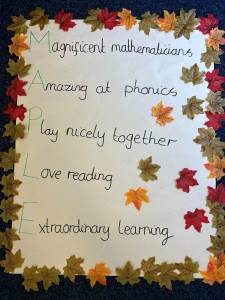 Magnificent mathematicians
Amazing at phonics
Play nicely together
Love reading
Extraordinary learning